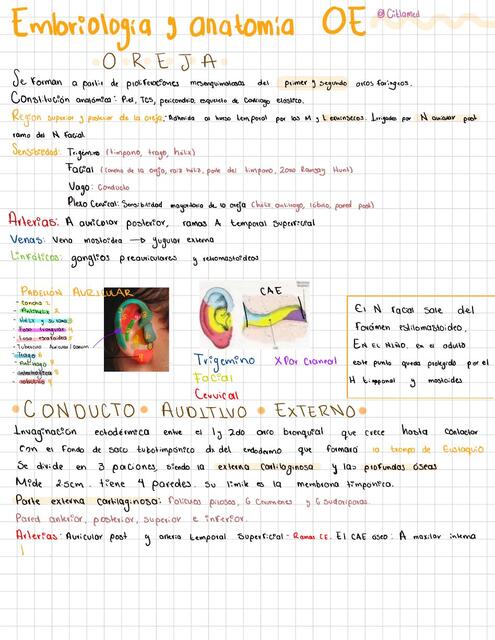 Embriología y anatomía OE @Citlamed
OREJA
Se forman a partir de proliferaciones mesenquimatosas del primer y segundo arcos faríngeos.
Constitución anatómica: Piel, TCS, pericondrio, esqueleto de cartílago elástico.
Región superior y posterior de la oreja: Adherida al hueso temporal por los M y Lextrínsecos. Irrigados por N auricular post
ramo del N Facial
Sensibilidad: Trigémino (tímpano, trago, helix)
Facial (concha de la oreja, raíz hélix, parte del tímpano, zona Ramsay Hunt)
Vago: Conducto
Plexo Cervical: Sensibilidad mayoritaria de la oreja (helix, antihago, lóbulo, pared post)
Arterias: A auricular posterior, ramas A temporal superficial
Venas: Vena mastoidea → yugular externa
Linfáticos: ganglios preauriculares y retromastoideos
PABELLÓN AURICULAR
- Concha 2
- Antihelix
- Fosa triangular
- Fosa escafoidea
- Tubérculo Auricular
- Trago
- Antitrago
- Lobulillo
CAE
Trigemino X Par Craneal
Facial
Cervical
El N facial sale del
Forámen estilomastoideo,
EN EL NIÑO, en el adulto
este punto queda protegido por el
H timpanal y mastoides
CONDUCTO AUDITIVO EXTERNO
Invaginación ectodérmica entre el 1 y 2do arco branquial que crece hasta contactar
con el fondo de saco tubotimpánico de del endodermo que formará la trompa de Eustaquio
Se divide en 3 porciones siendo la externa cartilaginosa y las profundas óseas
Mide 2.5cm. tiene 4 paredes. Su límite es la membrana timpánica.
Parte externa cartilaginosa: Folículos pilosos, G Ceruminas y G sudoríparas.
Pared anterior, posterior, superior e inferior.
Arterias: Auricular post y arteria temporal superficial - Ramas CE. El CAE óseo: A maxilar interna